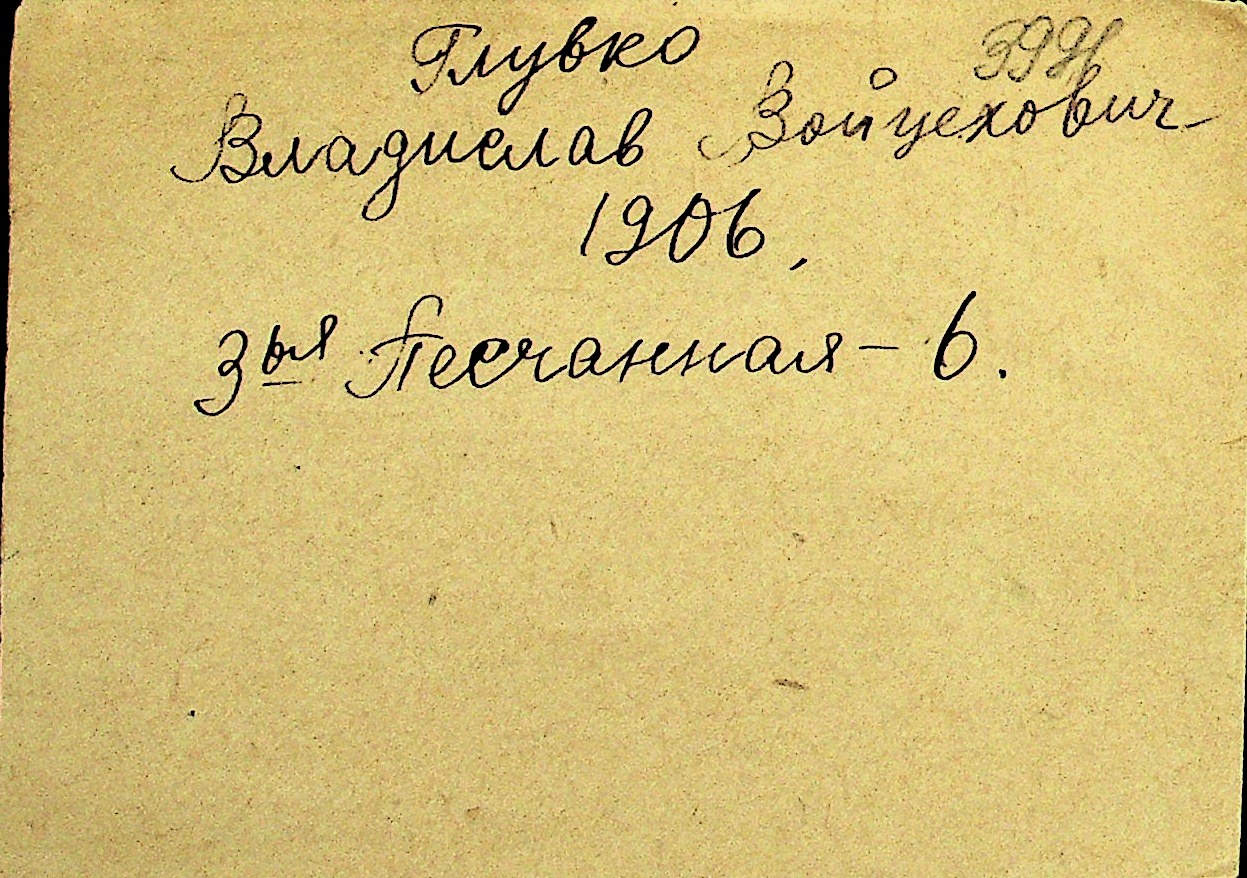 Глувко
Владислав Войцехович
1906,
3ья Песчанная – 6.